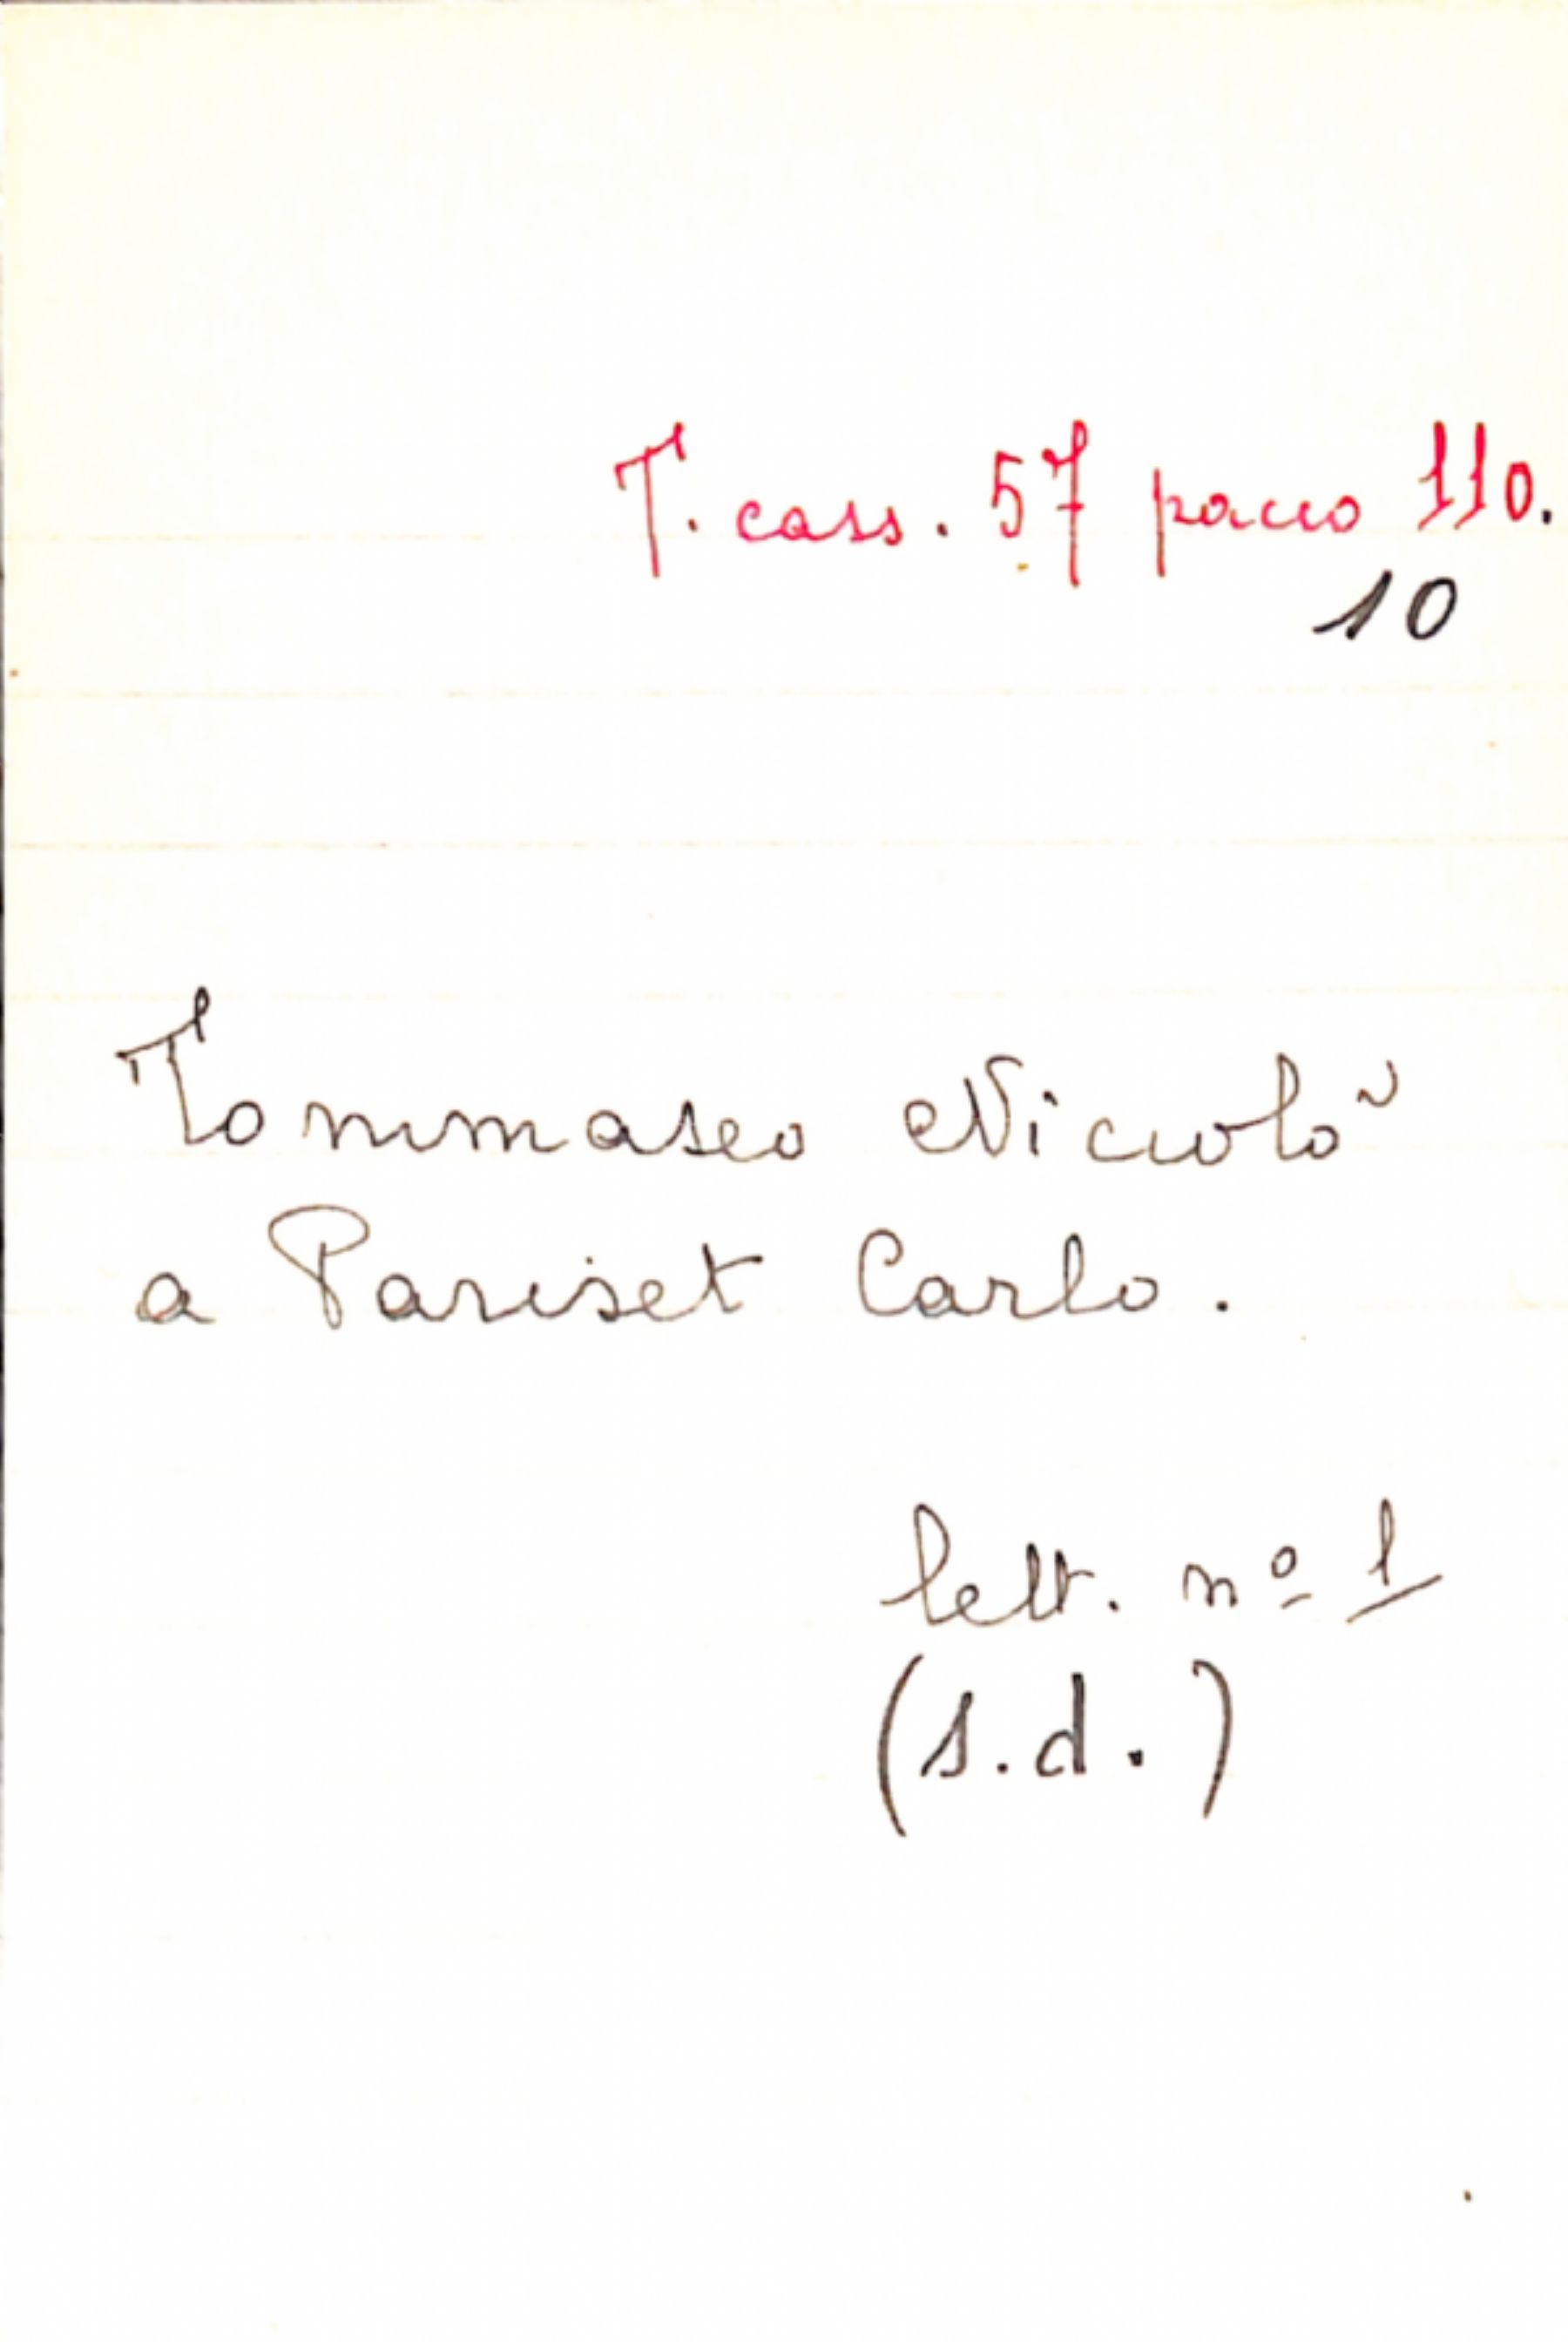 T. cass. 57 pacco 110.
10
Tommaseo Niccolò
a Pariset Carlo.
lett. nº 1
(s.d.)